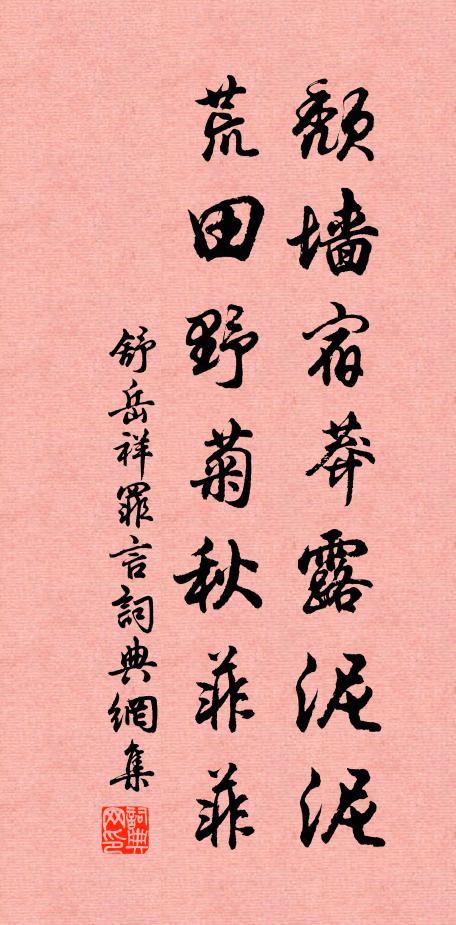 颓墙宿莽露泥泥
荒田野菊秋菲菲
舒岳祥罪言詞典網集
詞典网印